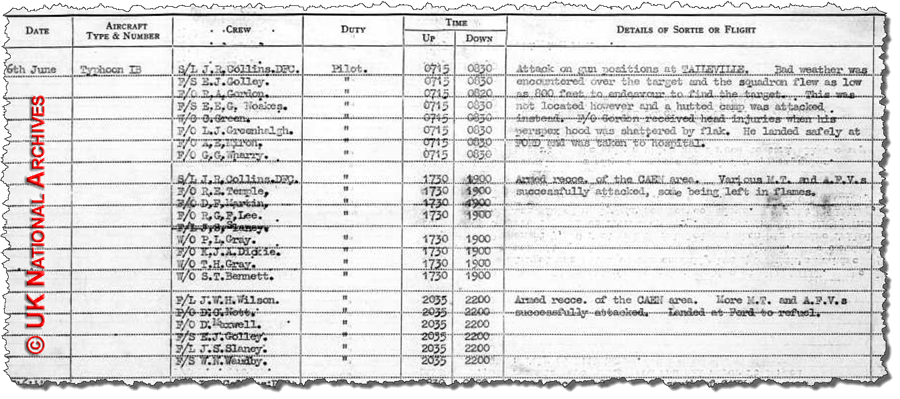 DATE AIRCRAFT TYPE & NUMBER CREW DUTY TIME UP DOWN DETAILS OF SORTIE OR FLIGHT
6th June Typhoon IB S/L J.R.Collins.DFC. Pilot. 0715 0830 Attack on gun positions at TAILLEVILLE. Bad weather was
F/S E.J.Golley. " 0715 0830 encountered over the target and the squadron flew as low
F/O R.A.Gordon. " 0715 0820 as 800 feet to endeavour to find the target. This was
F/S E.E.G. Noakes. " 0715 0830 not located however and a hutted camp was attacked
W/O C.Green. " 0715 0830 instead. F/O Gordon received head injuries when his
F/O L.J.Greenhalgh. " 0715 0830 perspex hood was shattered by flak. He landed safely at
F/O A.E.Miron. " 0715 0830 FORD and was taken to hospital.
F/O G.G.Wharry. " 0715 0830
S/L J.R.Collins.DFC. " 1730 1900 Armed recce. of the CAEN area. Various M.T. and A.F.V.s
F/O R.E.Temple, " 1730 1900 successfully attacked, some being left in flames.
F/O D.F.Martin, " 1730 1900
F/O R.G.F.Lee. " 1730 1900
F/L J.S.Slaney.
W/O P.L.Gray. " 1730 1900
F/O K.J.A.Dickie. " 1730 1900
W/O T.H.Gray. " 1730 1900
W/O S.T.Bennett. " 1730 1900
F/L J.W.H.Wilson. " 2035 2200 Armed recce. of the CAEN area. More M.T. and A.F.V.s
P/O D.C.Nott. " 2035 2200 successfully attacked. Landed at Ford to refuel.
F/O D. " 2035 2200
F/S E.J.Golley. " 2035 2200
F/L J.S.Slaney. " 2035 2200
F/S W.N. " 2035 2200
© UK NATIONAL ARCHIVES